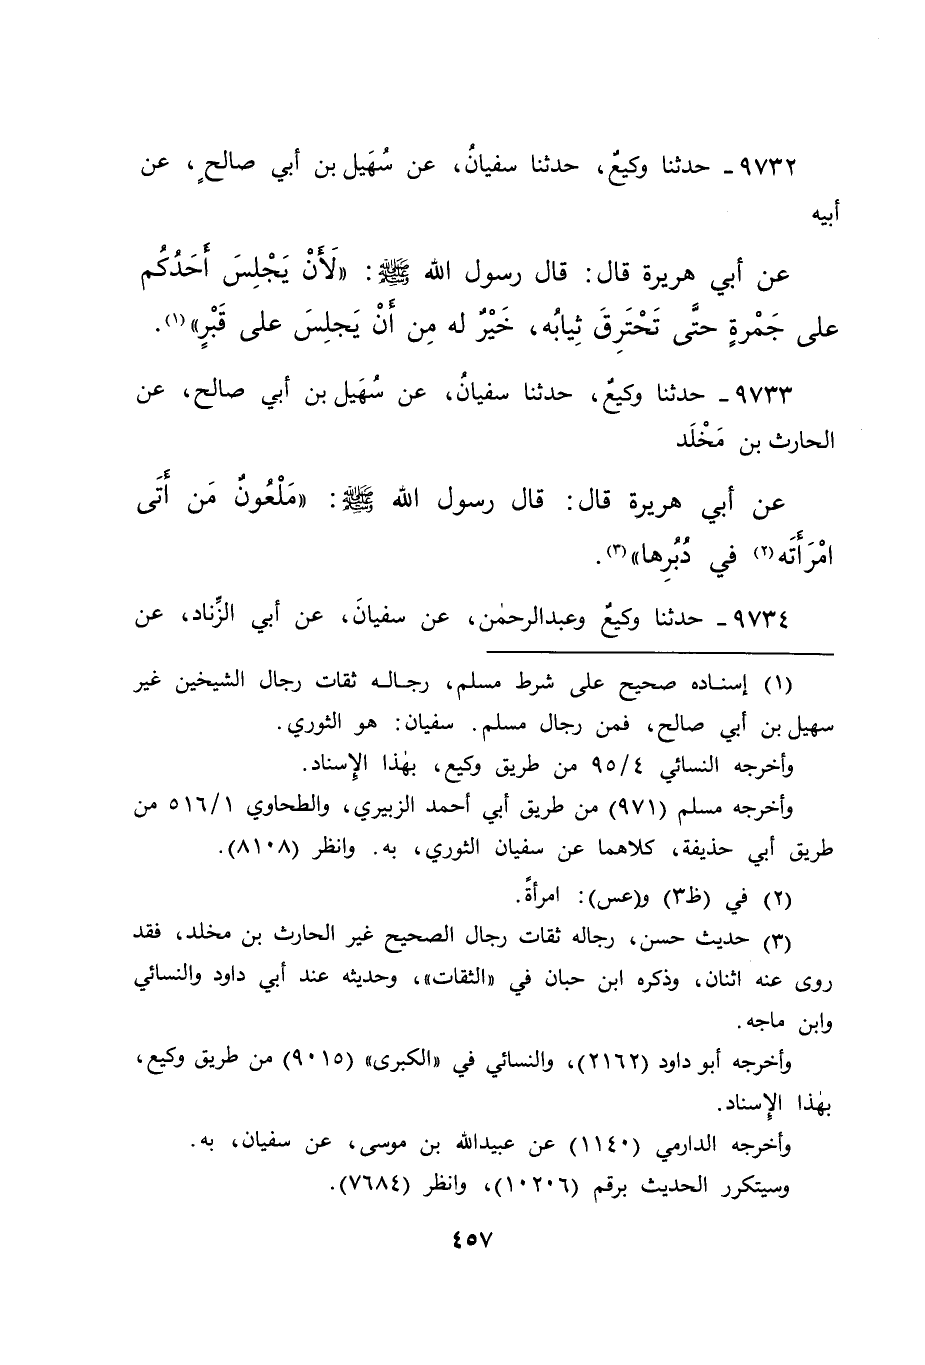 ٩٧٣٢ـ حدثنا وكيعٌ، حدثنا سفيانُ، عن سُهَيل بن أبي صالحٍ، عن
أبيه
عن أبي هريرة قال: قال رسول الله ﷺ: «لَأَنْ يَجْلِسَ أَحَدُكُم
على جَمْرةٍ حتَّى تَحْتَرِقَ ثِيابُه، خَيْرٌ له مِن أَنْ يَجلِسَ على قَبْرٍ»(١).
٩٧٣٣ـ حدثنا وكيعٌ، حدثنا سفيانُ، عن سُهَيل بن أبي صالح، عن
الحارث بن مَخْلَد
عن أبي هريرة قال: قال رسول الله ﷺ: «مَلْعُونٌ مَن أَتَى
امْرَأَتَه(٢) في دُبُرِها»(٣).
٩٧٣٤ـ حدثنا وكيعٌ وعبدالرحمٰن، عن سفيانَ، عن أبي الزِّناد، عن
(١) إسناده صحيح على شرط مسلم، رجاله ثقات رجال الشيخين غير
سهيل بن أبي صالح، فمن رجال مسلم. سفيان: هو الثوري.
وأخرجه النسائي ٩٥/٤ من طريق وكيع، بهٰذا الإِسناد.
وأخرجه مسلم (٩٧١) من طريق أبي أحمد الزبيري، والطحاوي ٥١٦/١ من
طريق أبي حذيفة، كلاهما عن سفيان الثوري، به. وانظر (٨١٠٨).
(٢) في (ظ٣) و(عس): امرأةً.
(٣) حديث حسن، رجاله ثقات رجال الصحيح غير الحارث بن مخلد، فقد
روى عنه اثنان، وذكره ابن حبان في «الثقات»، وحديثه عند أبي داود والنسائي
وابن ماجه.
وأخرجه أبو داود (٢١٦٢)، والنسائي في «الكبرى» (٩٠١٥) من طريق وكيع،
بهٰذا الإِسناد.
وأخرجه الدارمي (١١٤٠) عن عبيدالله بن موسى، عن سفيان، به.
وسيتكرر الحديث برقم (١٠٢٠٦)، وانظر (٧٦٨٤).
٤٥٧